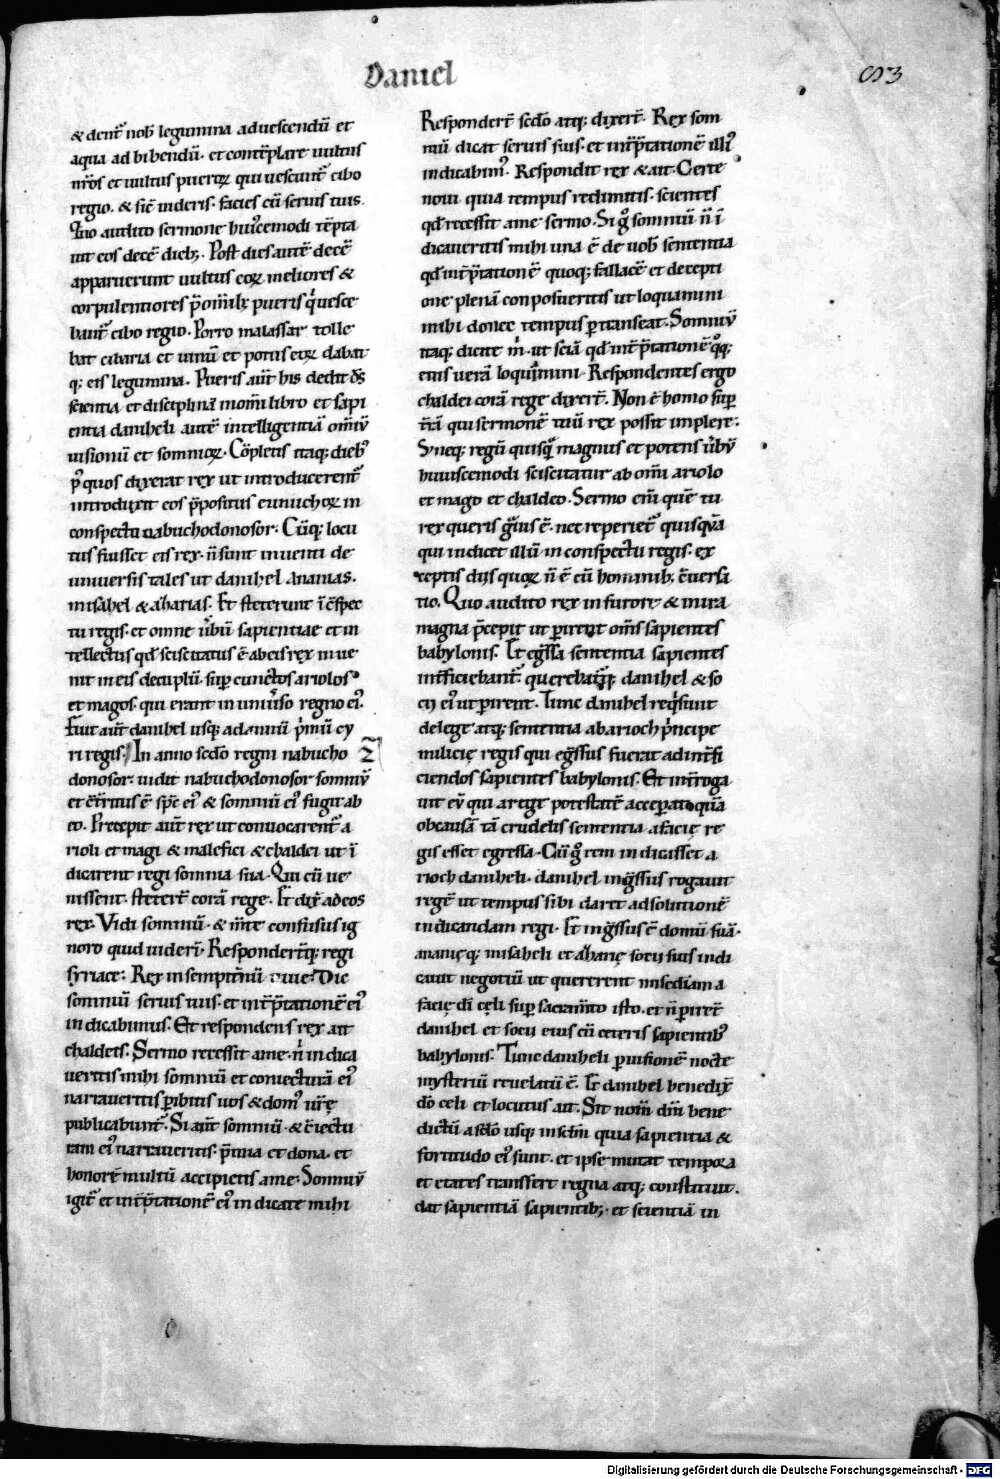 Daniel
& dent̄ nob̄ legumina aduescendū et
aqua ad bibendū. et contēplare uultus
nr̄os et uultus pueroꝝ qui uescunt̄ cibo
regio. & sic̄ uideris. facies cū seruis tuis.
Quo audito sermone huiꝰcemodi tēpta
uit eos decē dieb;. Post dies autē decē
apparuerunt uultus eoꝝ meliores &
corpulentiores p̄ om̄ib; pueris qui uesce
bant̄ cibo regio. Porro malassar tolle
bat cibaria et uinū et potus eoꝝ dabat
q; eis legumina. Pueris aūt his dedit d̄s
scientiā et disciplinā in om̄i libro et sapi
entia daniheli autē intelligentiā om̄iū
uisionū et somnioꝝ. Cōpletis itaq; diebꝰ
p̄ quos dixerat rex ut introducerent̄
introduxit eos p̄positus eunuchoꝝ in
conspectu nabuchodonosor. Cūq; locu
tus fuisset eis rex. n̄ sunt inuenti de
uniuersis tales ut danihel ananias.
misahel & azarias. Et steterunt ī c̄spec
tu regis. et omne uerbū sapientiae et in
tellectus qd̄ sciscitatus ē ab eis rex inue
nit in eis decuplū sup̄ cunctos ariolos
et magos. qui erant in uniuso regno eiꝰ.
Fuit aūt danihel usq; ad annū primū cy
ri regis. In anno scd̄o regni nabucho
donosor. uidit nabuchodonosor somniū
et cōtritus ē sp̄c eiꝰ & somniū eiꝰ fugit ab
eo. Precepit aūt rex ut conuocarent̄ a
rioli et magi & malefici & chaldei ut ī
dicarent regi somnia sua. Qui cū ue
nissent. steter̄t corā rege. Et dix̄ ad eos
rex. Vidi somniū. & m̄te confusus ig
noro quid uiderī. Responder̄tq; regi
syriace: Rex in sempitnū uiue. Dic
somniū seruis tuis. et int̄p̄tationē eiꝰ
indicabimus. Et respondens rex ait
chaldeis. Sermo recessit a me. nisi indica
ueritis mihi somniū et coniecturā eiꝰ
narraueritis peribitis uos & domꝰ ur̄ę
publicabunt̄. Si aūt somniū & c̄iectu
ram eiꝰ narraueritis. p̄mia et dona. et
honorē multū accipietis a me. Somniū
igit̄ et int̄p̄tationē eiꝰ indicate mihi
Responder̄t scd̄o atq; dixer̄t. Rex som
niū dicat seruis suis. et int̄p̄tationē illiꝰ
indicabimꝰ. Respondit rex & ait. Certe
noui quia tempus redimitis. scientes
qd̄ recessit a me sermo. Si g̊ somniū n̄ ī
dicaueritis mihi una ē de uob̄ sententia
qd̄ int̄p̄tationē quoq; fallacē et decepti
one plenā conposueritis ut loquamini
mihi donec tempus p̄transeat. Somniū
itaq; dicite m̄. ut sciā qd̄ int̄p̄tationē q̊q;
eius uerā loquimini. Respondentes ergo
chaldei corā rege dixer̄t. Non ē homo sup̄
t̄rā qui sermonē tuū rex possit implere.
S; neq; regū quisquā magnus et potens ūbū
huiuscemodi sciscitatur ab om̄i ariolo
et mago et chaldeo. Sermo enī quē tu
rex queris grauis ē. nec reperiet̄ quisquā
qui indicet illū in conspectu regis. ex
ceptis diis quoꝝ n̄ ē cū hominib; c̄uersa
tio. Quo audito rex in furore & in ira
magna p̄cepit ut perirent om̄s sapientes
babylonis. Et egressa sententia sapientes
int̄ficiebant̄. querebat̄q; danihel & so
cii eiꝰ ut perirent. Tunc danihel req̇siuit
de lege atq; sententia ab arioch principe
milicię regis qui egressus fuerat ad int̄fi
ciendos sapientes babylonis. Et int̄roga
uit eū qui a rege potestatē acceperat. quā
ob causā tā crudelis sententia a facię re
gis esset egressa. Cū g̊ rem indicasset a
rioch daniheli. danihel ingressus rogauit
regē ut tempus sibi daret ad solutionē
indicandam regi. Et ingressus ē domū suā.
ananięq; misaheli et azarię sociis suis indi
cauit negotiū ut quererent misediam a
facię dī cęli sup̄ sacram̄to isto. et n̄ perir̄et
danihel et socii eius cū ceteris sapientibꝰ
babylonis. Tunc daniheli p̄ uisionē nocte
mysteriū reuelatū ē. Et danihel benedix̄
dō celi et locutus ait. Sit nom̄ dn̄i bene
dictū a scd̄o usq; in scl̄m quia sapientia &
fortitudo eiꝰ sunt. et ipse mutat tempora
et etates transfert regna atq; constituit.
dat sapientiā sapientib;. et scientiā in
Digitalisierung gefördert durch die Deutsche Forschungsgemeinschaft - DFG